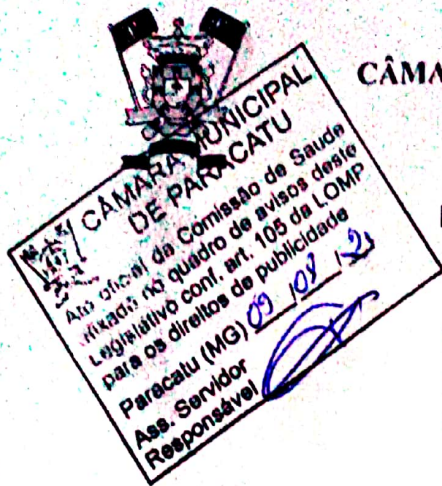 CÂMA
CÂMARA MUNICIPAL
DE PARACATU
Ato oficial da Comissão de Saude
afixado no quadro de avisos deste
Legislativo conf. art. 105 da LOMP
para os direitos de publicidade
Paracatu (MG) 09/08/21
Ass. Servidor
Responsável